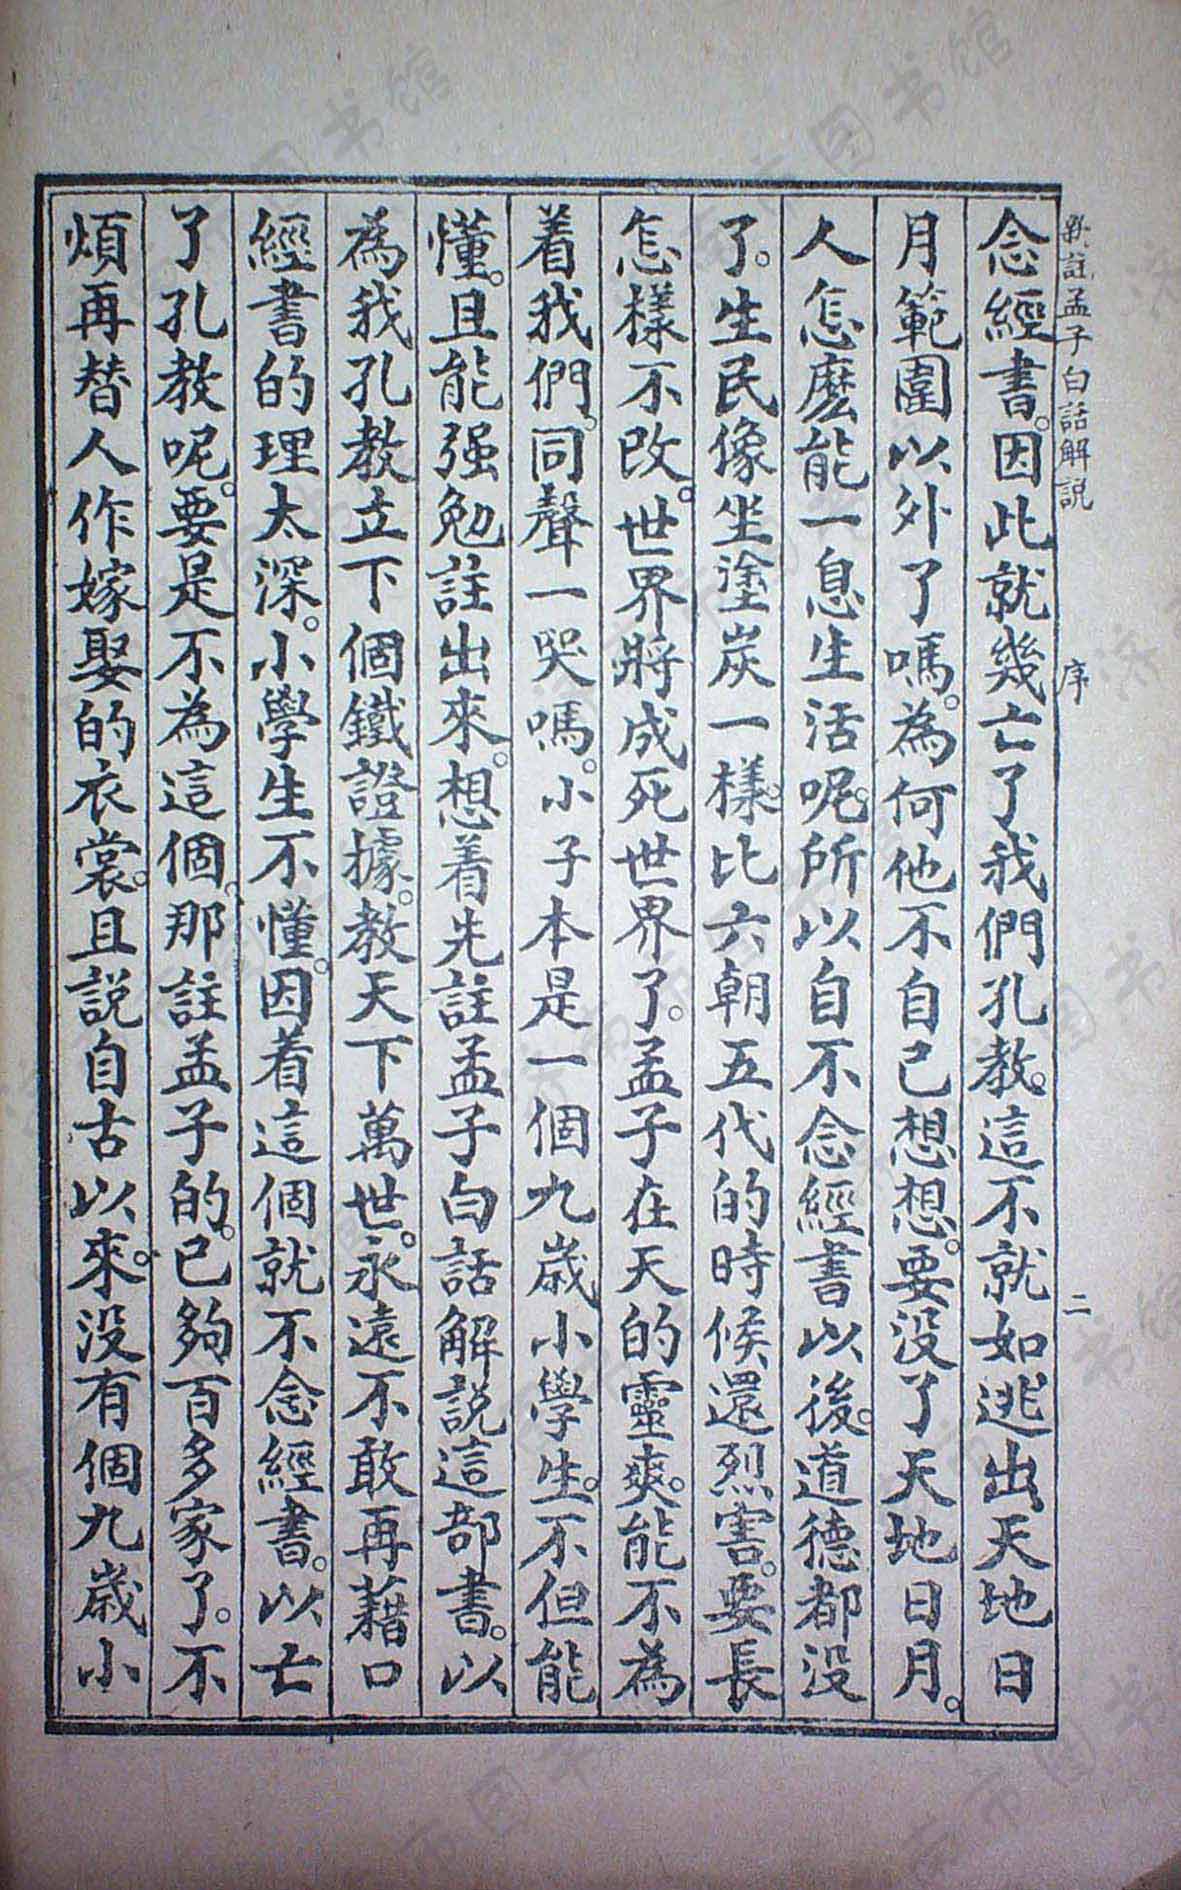 新註孟子白話解説 序 二
念經書。因此就幾亡了我們孔教。這不就如逃出天地日
月範圍以外了嗎。為何他不自己想想。要没了天地日月。
人怎麽能一息生活呢。所以自不念經書以後。道德都没
了。生民像坐塗炭一樣。比六朝五代的時候還烈害。要長
怎樣不改。世界將成死世界了。孟子在天的靈爽。能不為
着我們。同聲一哭嗎。小子本是一個九歲小學生。不但能
懂。且能强勉註出來。想着先註孟子白話解説這部書。以
為我孔教立下個鐵證據。教天下萬世。永遠不敢再藉口
經書的理太深。小學生不懂。因着這個就不念經書。以亡
了孔教呢。要是不為這個。那註孟子的。已夠百多家了。不
煩再替人作嫁娶的衣裳。且説自古以來。没有個九歲小